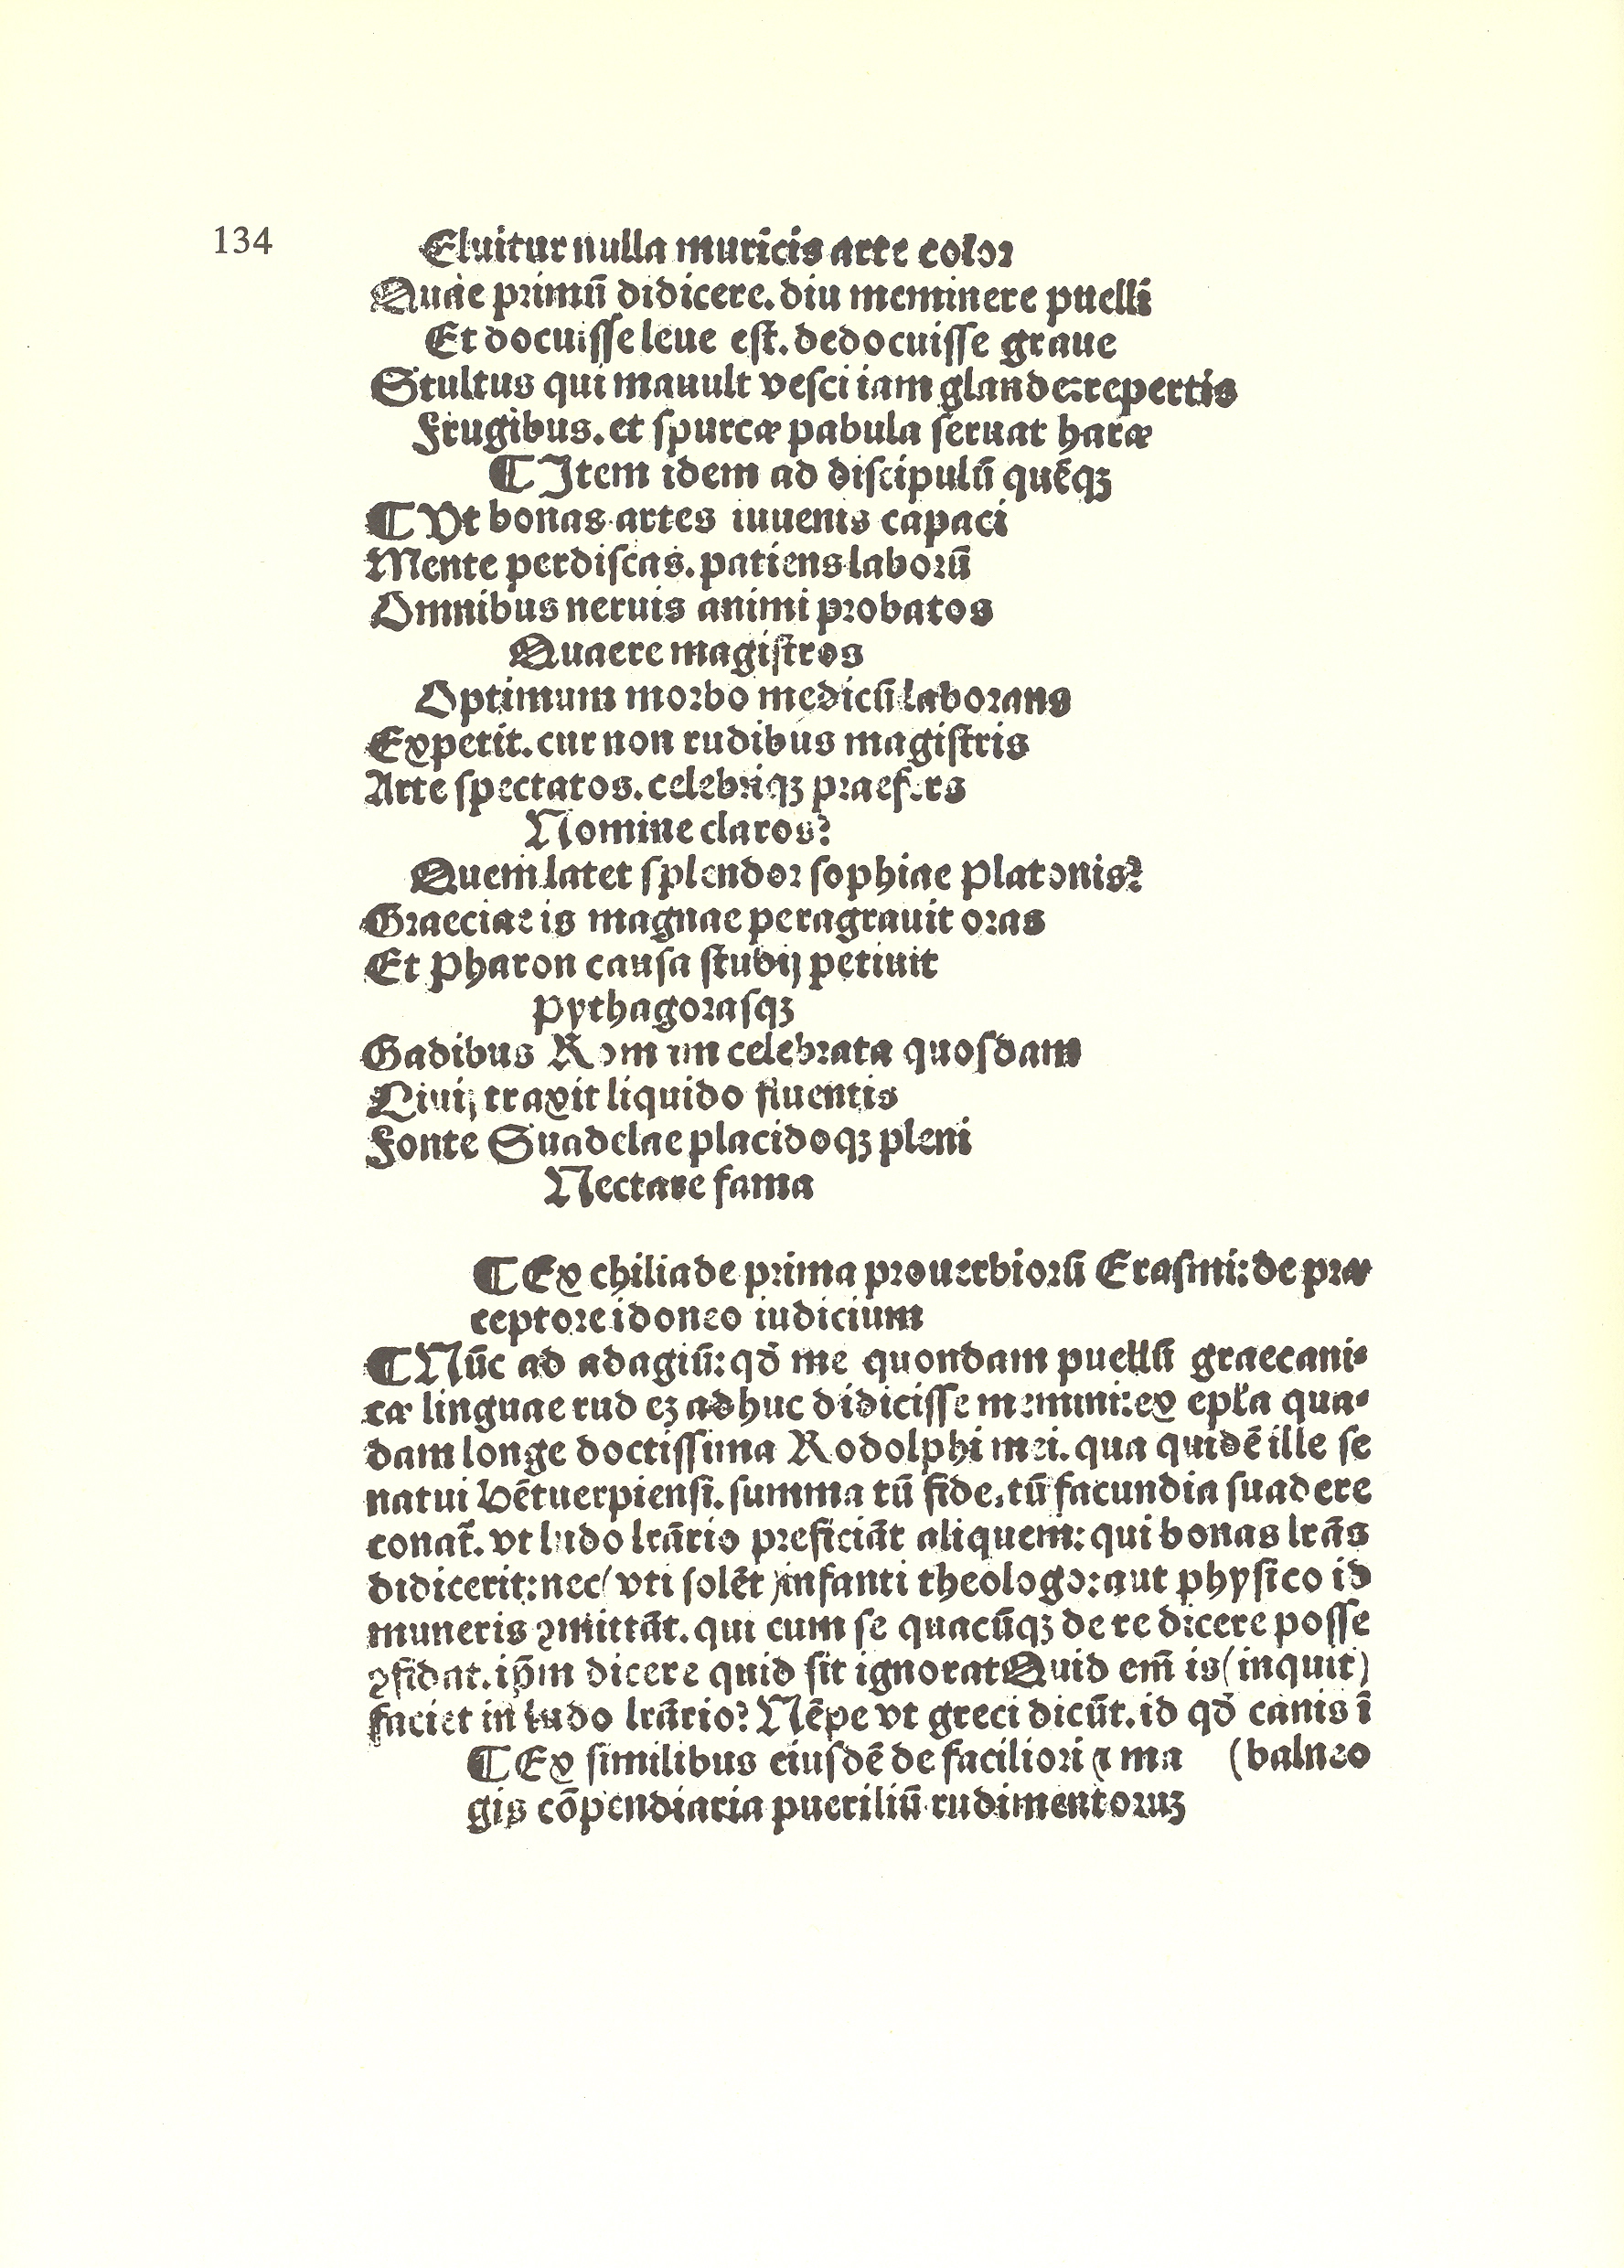 134
Eluitur nulla muricis arte color
Quae primū didicere. diu meminere puelli
Et docuisse leue est. dedocuisse graue
Stultus qui mauult vesci iam glande: repertis
Frugibus. et spurcæ pabula seruat haræ
¶ Item idem ad discipulū quēqꝫ
¶ Vt bonas artes iuuenis capaci
Mente perdiscas. patiens laborū
Omnibus neruis animi probatos
Quaere magistros
Optimum morbo medicū laborans
Expetit. cur non rudibus magistris
Arte spectatos. celebriqꝫ praefers
Nomine claros?
Quem latet splendor sophiae Platonis?
Graeciae is magnae peragrauit oras
Et Pharon causa studij petiuit
Pythagorasqꝫ
Gadibus Romam celebrata quosdam
Liuij traxit liquido fluentis
Fonte Suadelae placidoqꝫ pleni
Nectare fama
¶ Ex chiliade prima prouerbiorū Erasmi: de præ
ceptore idoneo iudicium
¶ Nūc ad adagiū: qđ me quondam puellū graecani⸗
cæ linguae rudeꝫ adhuc didicisse memini: ex epła qua⸗
dam longe doctissima Rodolphi mei. qua quidē ille se
natui hētuerpiensi. summa tū fide, tū facundia suadere
conat̄. vt ludo lrārio preficiāt aliquem: qui bonas lrās
didicerit: nec (vti solēt) infanti theologo: aut physico id
muneris ꝯmittāt. qui cum se quacūqꝫ de re dicere posse
ꝯfidat. ip̄m dicere quid sit ignorat Quid em̄ is (inquit)
faciet in ludo lrārio? Nēpe vt greci dicūt. id qđ canis ī
¶ Ex similibus eiusdē de faciliori ⁊ ma (balneo
gis cōpendiaria pueriliū rudimentoruꝫ